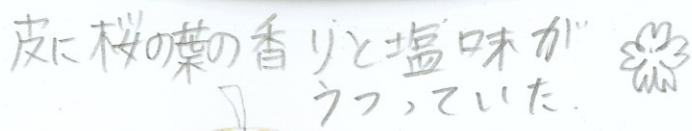 皮に桜の葉の香りと塩味が
うつっていた.